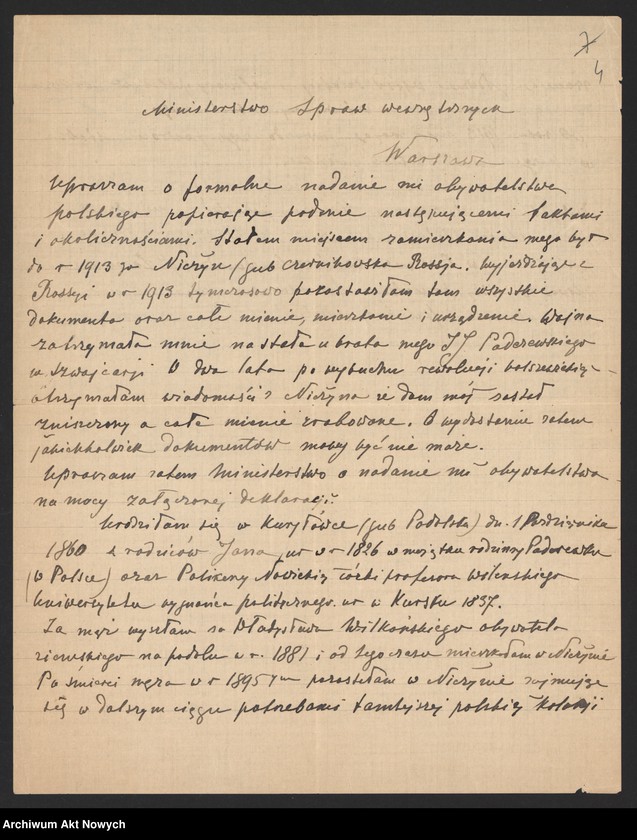 7
4
Ministerstwo Spraw wewnętrznych
Warszawa
Upraszam o formalne nadanie mi obywatelstwa
polskiego popierając podanie następującemi faktami
i okolicznościami. Stałem miejscem zamieszkania mego był
do r 1913 go Nieżyn (gub czernihowska Rossja. Wyjeżdżając z
Rossyi w r 1913 tymczasowo pozostawiłam tam wszystkie
dokumenta oraz całe mienie, mieszkanie i urządzenie. Wojna
zatrzymała mnie na stałe u brata mego I J Paderewskiego
w Szwajcarji W dwa lata po wybuchu rewolucji bolszewickiej
otrzymałam wiadomość z Nieżyna że dom mój został
zniszczony a całe mienie zrabowane. O wydostaniu zatem
jakichkolwiek dokumentów mowy być nie może.
Upraszam zatem Ministerstwo o nadanie mi obywatelstwa
na mocy załączonej deklaracji:
Urodziłam się w Kuryłówce (gub Podolska) dn. 1 Października
1860 z rodziców Jana, ur w r 1826 w majątku rodzinnym Paderewku
(w Polsce) oraz Polikseny Nowickiej córki profesora Wileńskiego
Uniwersytetu wygnańca politycznego. ur w Kursku 1837.
Za mąż wyszłam za Władysława Wilkońskiego obywatela
ziemskiego na podolu w r. 1881 i od tego czasu mieszkałam w Nieżynie
Po śmierci męża w r 1895 ym pozostałam w Nieżynie zajmując
się w dalszym ciągu potrzebami tamtejszej polskiej kolonji
Archiwum Akt Nowych